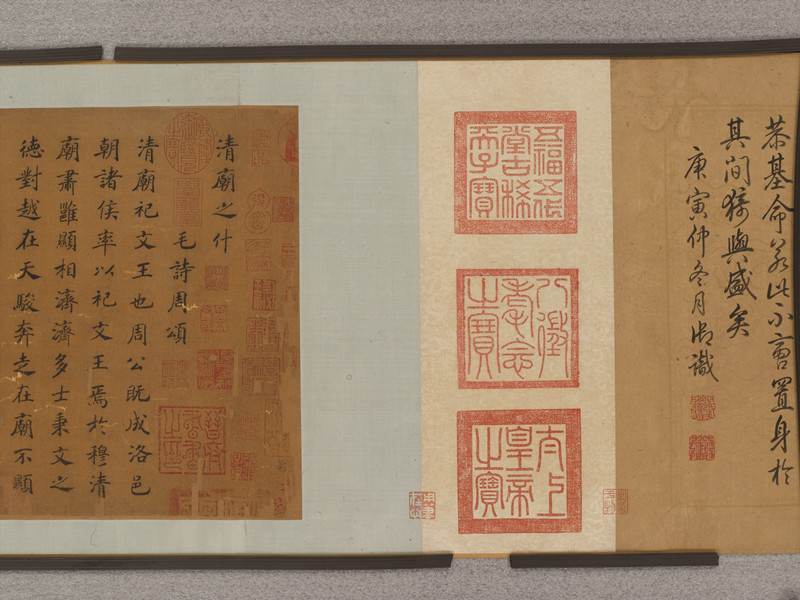 恭基命若此不啻置身於
其間猗與盛矣
庚寅仲冬月御識
五福五代
堂古稀
天子寶
八徵
耄念
之寶
太上
皇帝
之寶
清廟之什
毛詩周頌
清廟祀文王也周公既成洛邑
朝諸侯率以祀文王焉於穆清
廟肅雝顯相濟濟多士秉文之
德對越在天駿奔走在廟不顯
晉府
書畫
之印